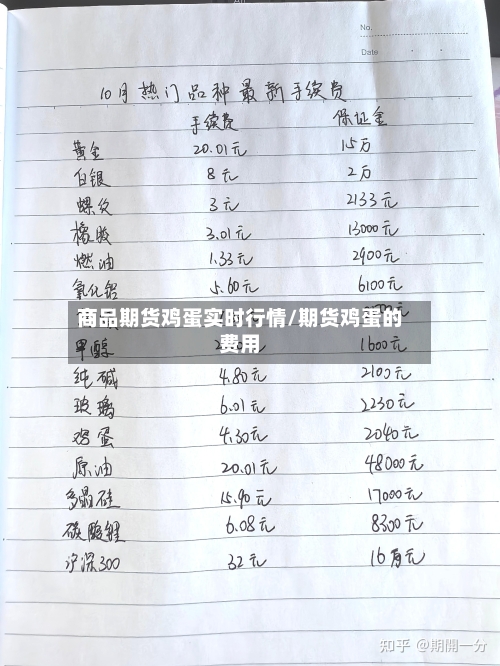 No.
Date
10月热门品种最新手续费
手续费 保证金
黄金 20.01元 15万
白银 8元 2万
螺纹 3元 2133元
橡胶 3.01元 13000元
燃油 1.33元 2900元
氧化铝 5.60元 6100元
商品期货鸡蛋实时行情/期货鸡蛋的
费用
甲醇 1600元
纯碱 4.80元 2100元
玻璃 6.01元 2230元
鸡蛋 4.30元 2040元
原油 20.01元 48000元
多晶硅 15.90元 17000元
碳酸锂 6.08元 8300元
沪深300 32元 16万元
知乎 @期開一分